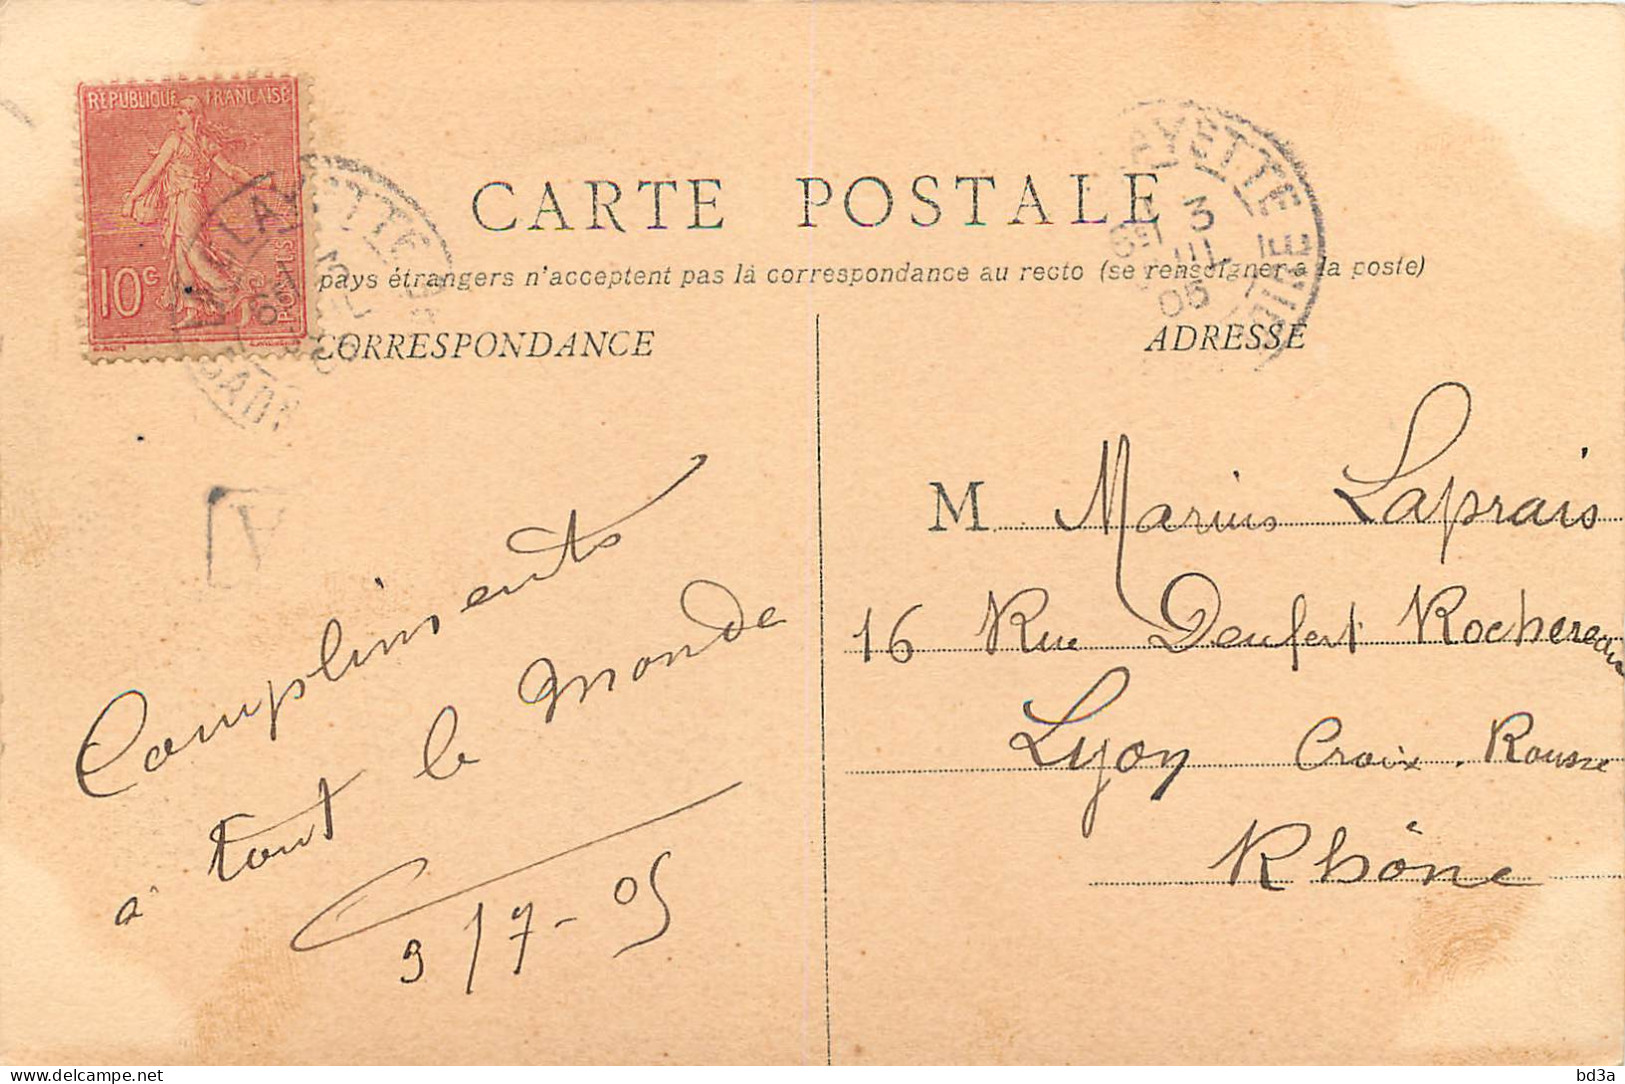 RÉPUBLIQUE FRANÇAISE
10c
POSTES
3
05
CARTE POSTALE
pays étrangers n'acceptent pas la correspondance au recto (se renseigner à la poste)
CORRESPONDANCE
ADRESSE
A
Compliments
à tout le monde
3/7-05
M Marius Laprais
16 Rue Denfert Rochereau
Lyon Croix-Rousse
Rhône
www.delcampe.net
bd3a